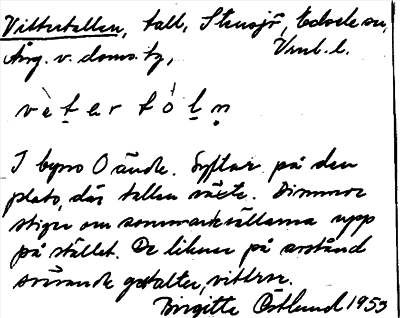 Vittertallen, tall, Stensjö, Lövånger sn,
Ång. v. doms. tg, Vmb. l.
vètertòln
I byns O ände. Syftar på den
plats, där tallen växte. Dimmor
stiger om sommarkvällarna upp
på stället. De liknar på avstånd
svävande gestalter, vittror.
Birgitta Östlund 1953